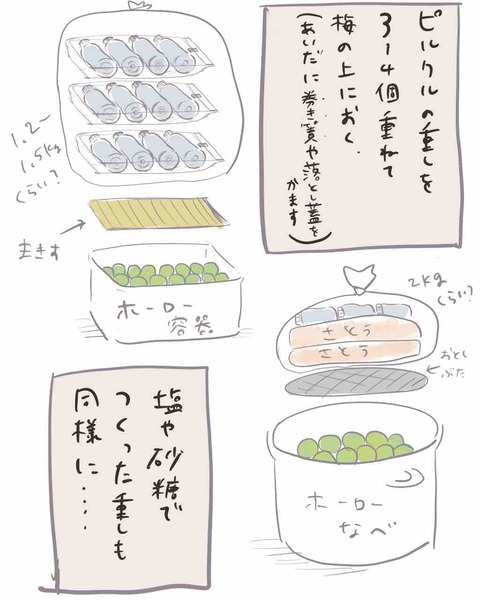 ピルクルの重しを
3〜4個重ねて
梅の上におく.
(あいだに巻き簀や落とし蓋を
かます)
1.2〜
1.5kg
くらい?
まきす
ホーロー
容器
2kg
くらい?
さとう
さとう
おとし
ぶた
ホーロー
なべ
塩や砂糖で
つくった重しも
同様に‥‥